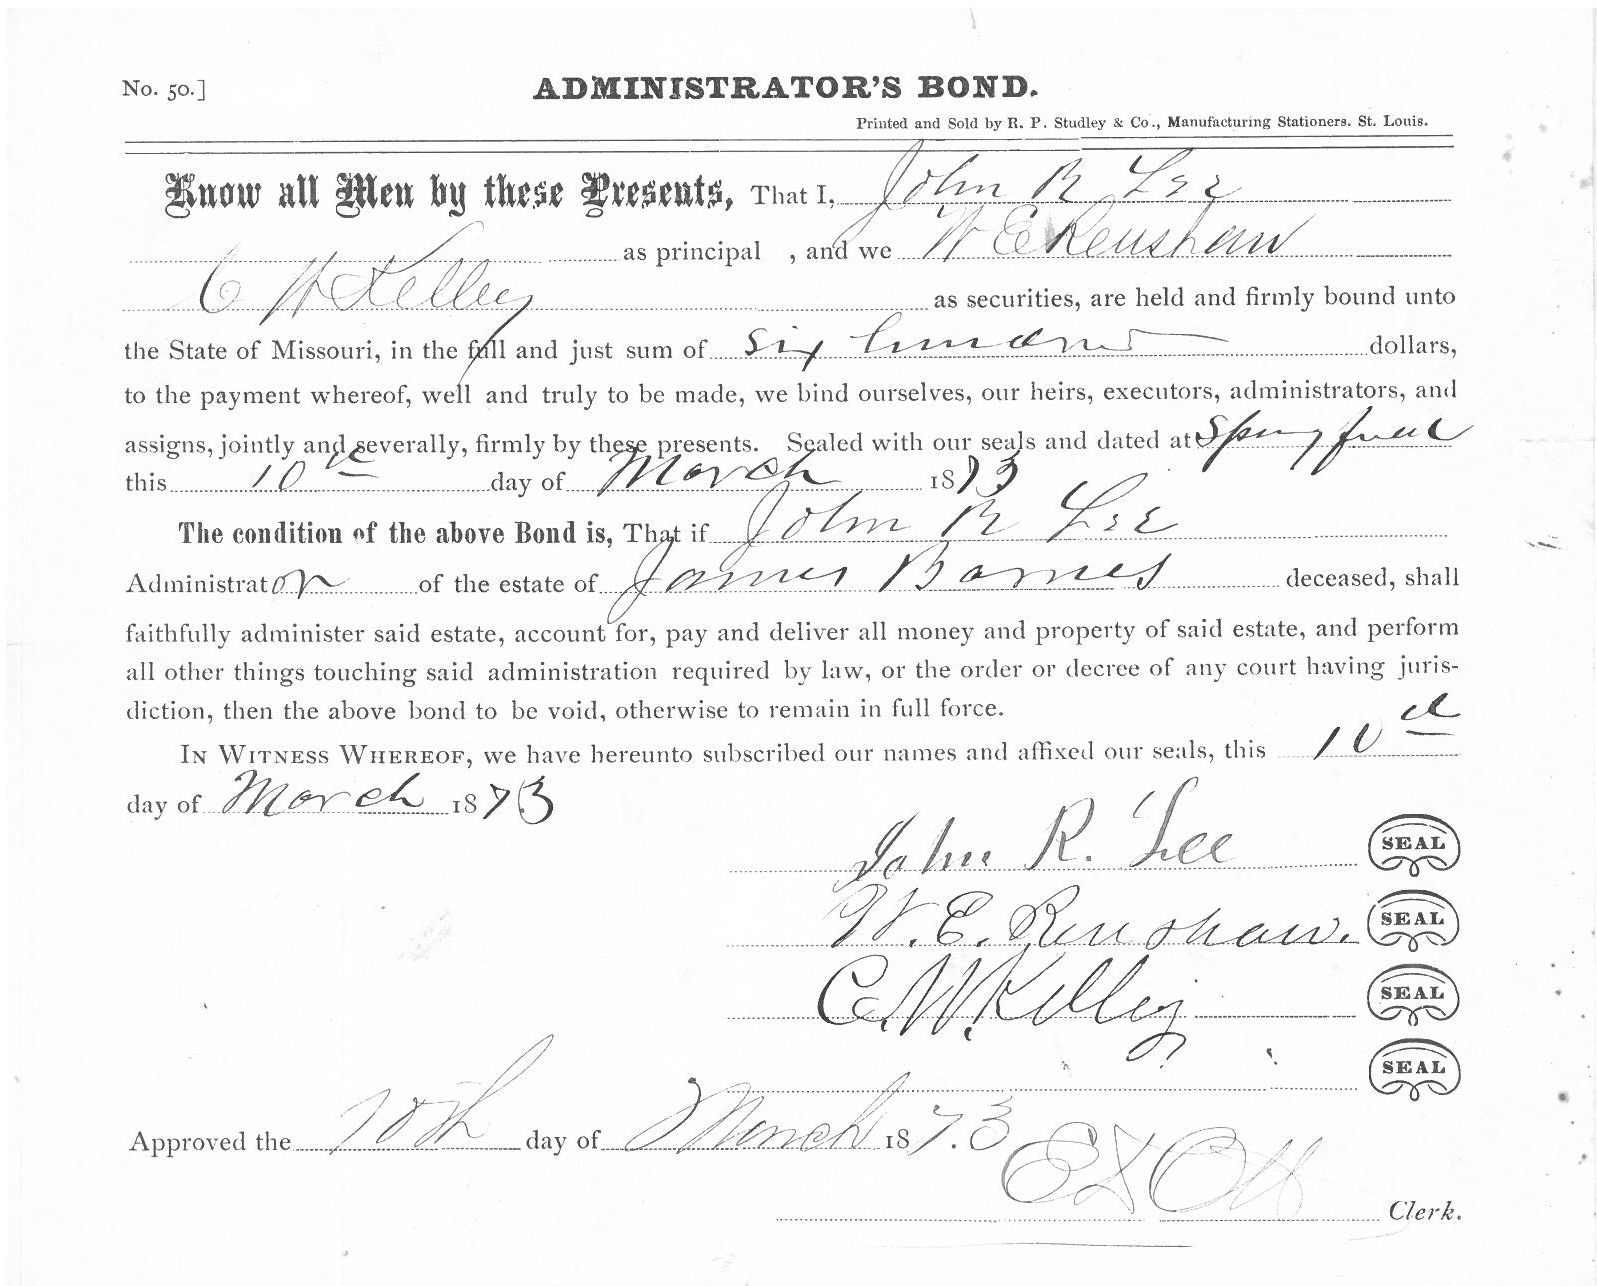 No. 50.]
ADMINISTRATOR'S BOND.
Printed and Sold by R. P. Studley & Co., Manufacturing Stationers. St. Louis.
Know all Men by these Presents, That I, John R Lee
as principal , and we W E Renshaw
C W Kelley as securities, are held and firmly bound unto
the State of Missouri, in the full and just sum of six hundred dollars,
to the payment whereof, well and truly to be made, we bind ourselves, our heirs, executors, administrators, and
assigns, jointly and severally, firmly by these presents. Sealed with our seals and dated at Springfield
this 10th day of March 1873
The condition of the above Bond is, That if John R Lee
Administrator of the estate of James Barnes deceased, shall
faithfully administer said estate, account for, pay and deliver all money and property of said estate, and perform
all other things touching said administration required by law, or the order or decree of any court having juris-
diction, then the above bond to be void, otherwise to remain in full force.
IN WITNESS WHEREOF, we have hereunto subscribed our names and affixed our seals, this 10th
day of March 1873
John R. Lee SEAL
W. E. Renshaw. SEAL
C. W. Kelley SEAL
SEAL
Approved the 10th day of March 187.3
Clerk.